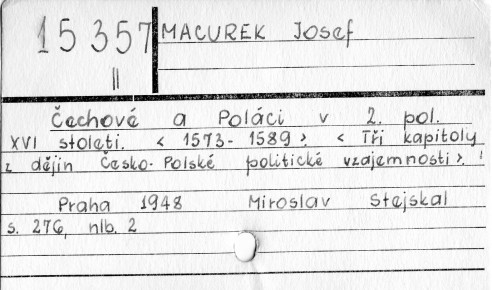 15 357
II
MACUREK Josef
Čechové a Poláci v 2. pol.
XVI stoleti. < 1573-1589>. < Tři kapitoly
z dějin Česko-Polské politické vzajemnosti>.
Praha 1948 Miroslav Stejskal
s. 276, nlb. 2